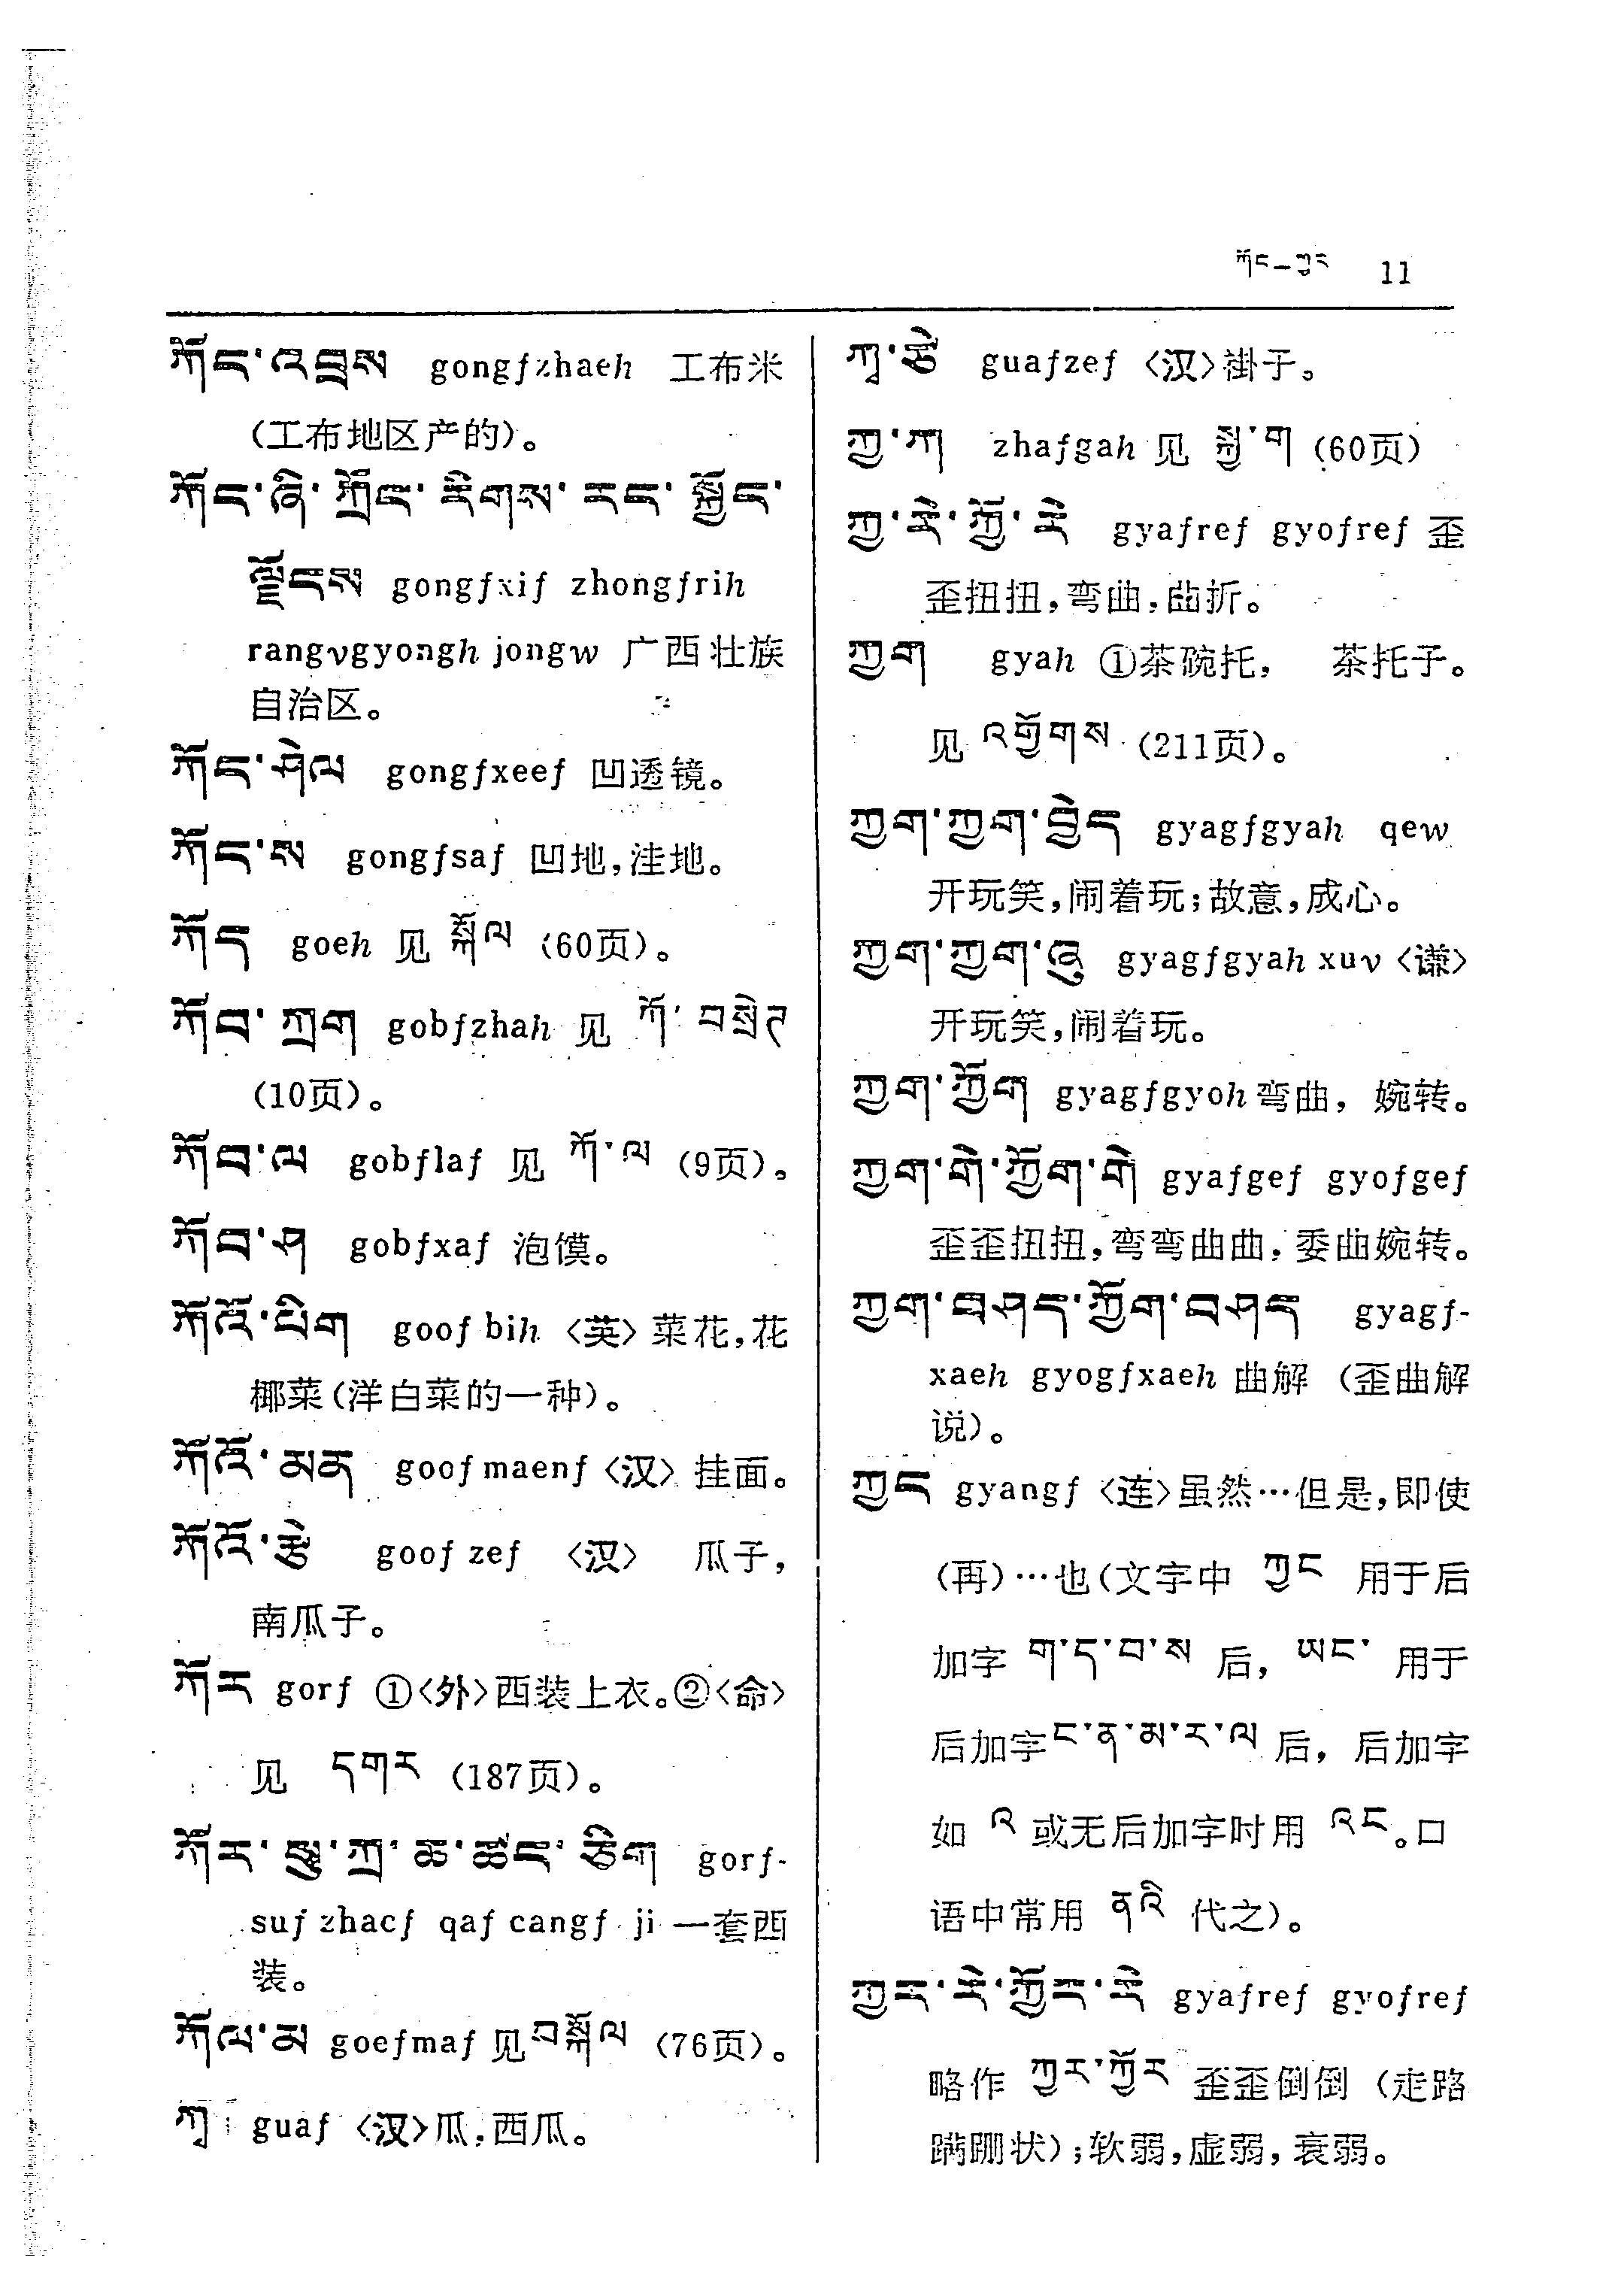 ཀོང—ཀྱར 11
ཀོང་འབྲས gongfzhaeh 工布米
(工布地区产的)。
ཀོང་ཞི་ཀྲོང་རིགས་རང་སྐྱོང་
ལྗོངས gongfxif zhongfrih
rangvgyongh jongw 广西壮族
自治区。
ཀོང་ཤེལ gongfxeef 凹透镜。
ཀོང་ས gongfsaf 凹地,洼地。
ཀོད goeh 见 སྐོལ (60页)。
ཀོབ་ཀྲག gobfzhah 见 ཀོ་བསྲེད
(10页)。
ཀོབ་ལ gobflaf 见 ཀོ་ལ (9页)。
ཀོབ་ཤ gobfxaf 泡馍。
ཀོའོ་པིག goof bih 〈英〉菜花,花
椰菜(洋白菜的一种)。
ཀོའོ་མན goof maenf〈汉〉挂面。
ཀོའོ་ཙེ goof zef 〈汉〉 瓜子,
南瓜子。
ཀོར gorf ①〈外〉西装上衣。②〈命〉
见 དགར (187页)。
ཀོར་སུ་ཀྲ་ཆ་ཚང་ཅིག gorf-
suf zhacf qaf cangf ji 一套西
装。
ཀོལ་མ goefmaf 见བསྐོལ (76页)。
ཀྭ guaf 〈汉〉瓜,西瓜。
ཀྭ་ཙེ guafzef 〈汉〉褂子。
ཀྱ་ཀ zhafgah 见 སྐྱ་ག (60页)
ཀྱ་རེ་ཀྱོ་རེ gyafref gyofref 歪
歪扭扭,弯曲,曲折。
ཀྱག gyah ①茶碗托, 茶托子。
见 འགྱོགས (211页)。
ཀྱག་ཀྱག་བྱེད gyagfgyah qew
开玩笑,闹着玩;故意,成心。
ཀྱག་ཀྱག་ཞུ gyagfgyah xuv〈谦〉
开玩笑,闹着玩。
ཀྱག་ཀྱོག gyagfgyoh弯曲, 婉转。
ཀྱག་གེ་ཀྱོག་གེ gyafgef gyofgef
歪歪扭扭,弯弯曲曲,委曲婉转。
ཀྱག་བཤད་ཀྱོག་བཤད gyagf-
xaeh gyogfxaeh 曲解 (歪曲解
说)。
ཀྱང gyangf 〈连〉虽然…但是,即使
(再)…也(文字中 ཀྱང 用于后
加字 ག་ད་བ་ས 后, ཡང་ 用于
后加字ང་ན་མ་ར་ལ 后, 后加字
如 འ 或无后加字时用 འང。口
语中常用 ནའི 代之)。
ཀྱར་རེ་ཀྱོར་རེ gyafref gyofref
略作 ཀྱར་ཀྱོར 歪歪倒倒 (走路
蹒跚状);软弱,虚弱,衰弱。